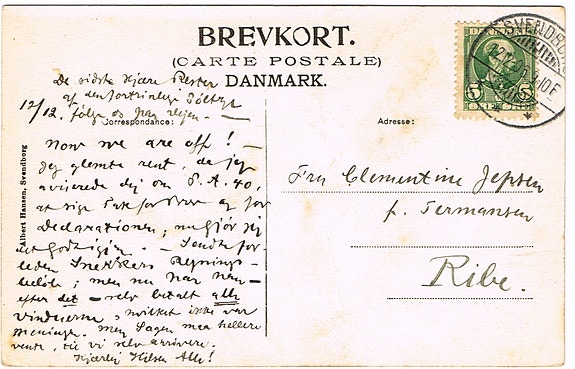 BREVKORT.
(CARTE POSTALE)
DANMARK.
De sidste kjære Rester
af den fortrinlige Søltøj
12/12. følge os paa rejsen. —
Correspondance:
Now we are off! —
Jeg glemte rent, da jeg
aviserede dig om P.A. 40,
at sige Tak for Brev og for
Declarationen; nu gjør jeg
det — Sendte for-
leden Snekkers Regnings-
beløb; men nu har han —
efter det — selv betalt alle
vinduerne, hvilket ikke var
meningen. Men Sagen maa hellere
vente, til vi selv arrivere.
Kjærlig Hilsen Alle!
Albert Hansen, Svendborg
SVENDBORG
DANMARK
5 5
Adresse:
Fru Clementine Jepsen
p. Termansen
Ribe.